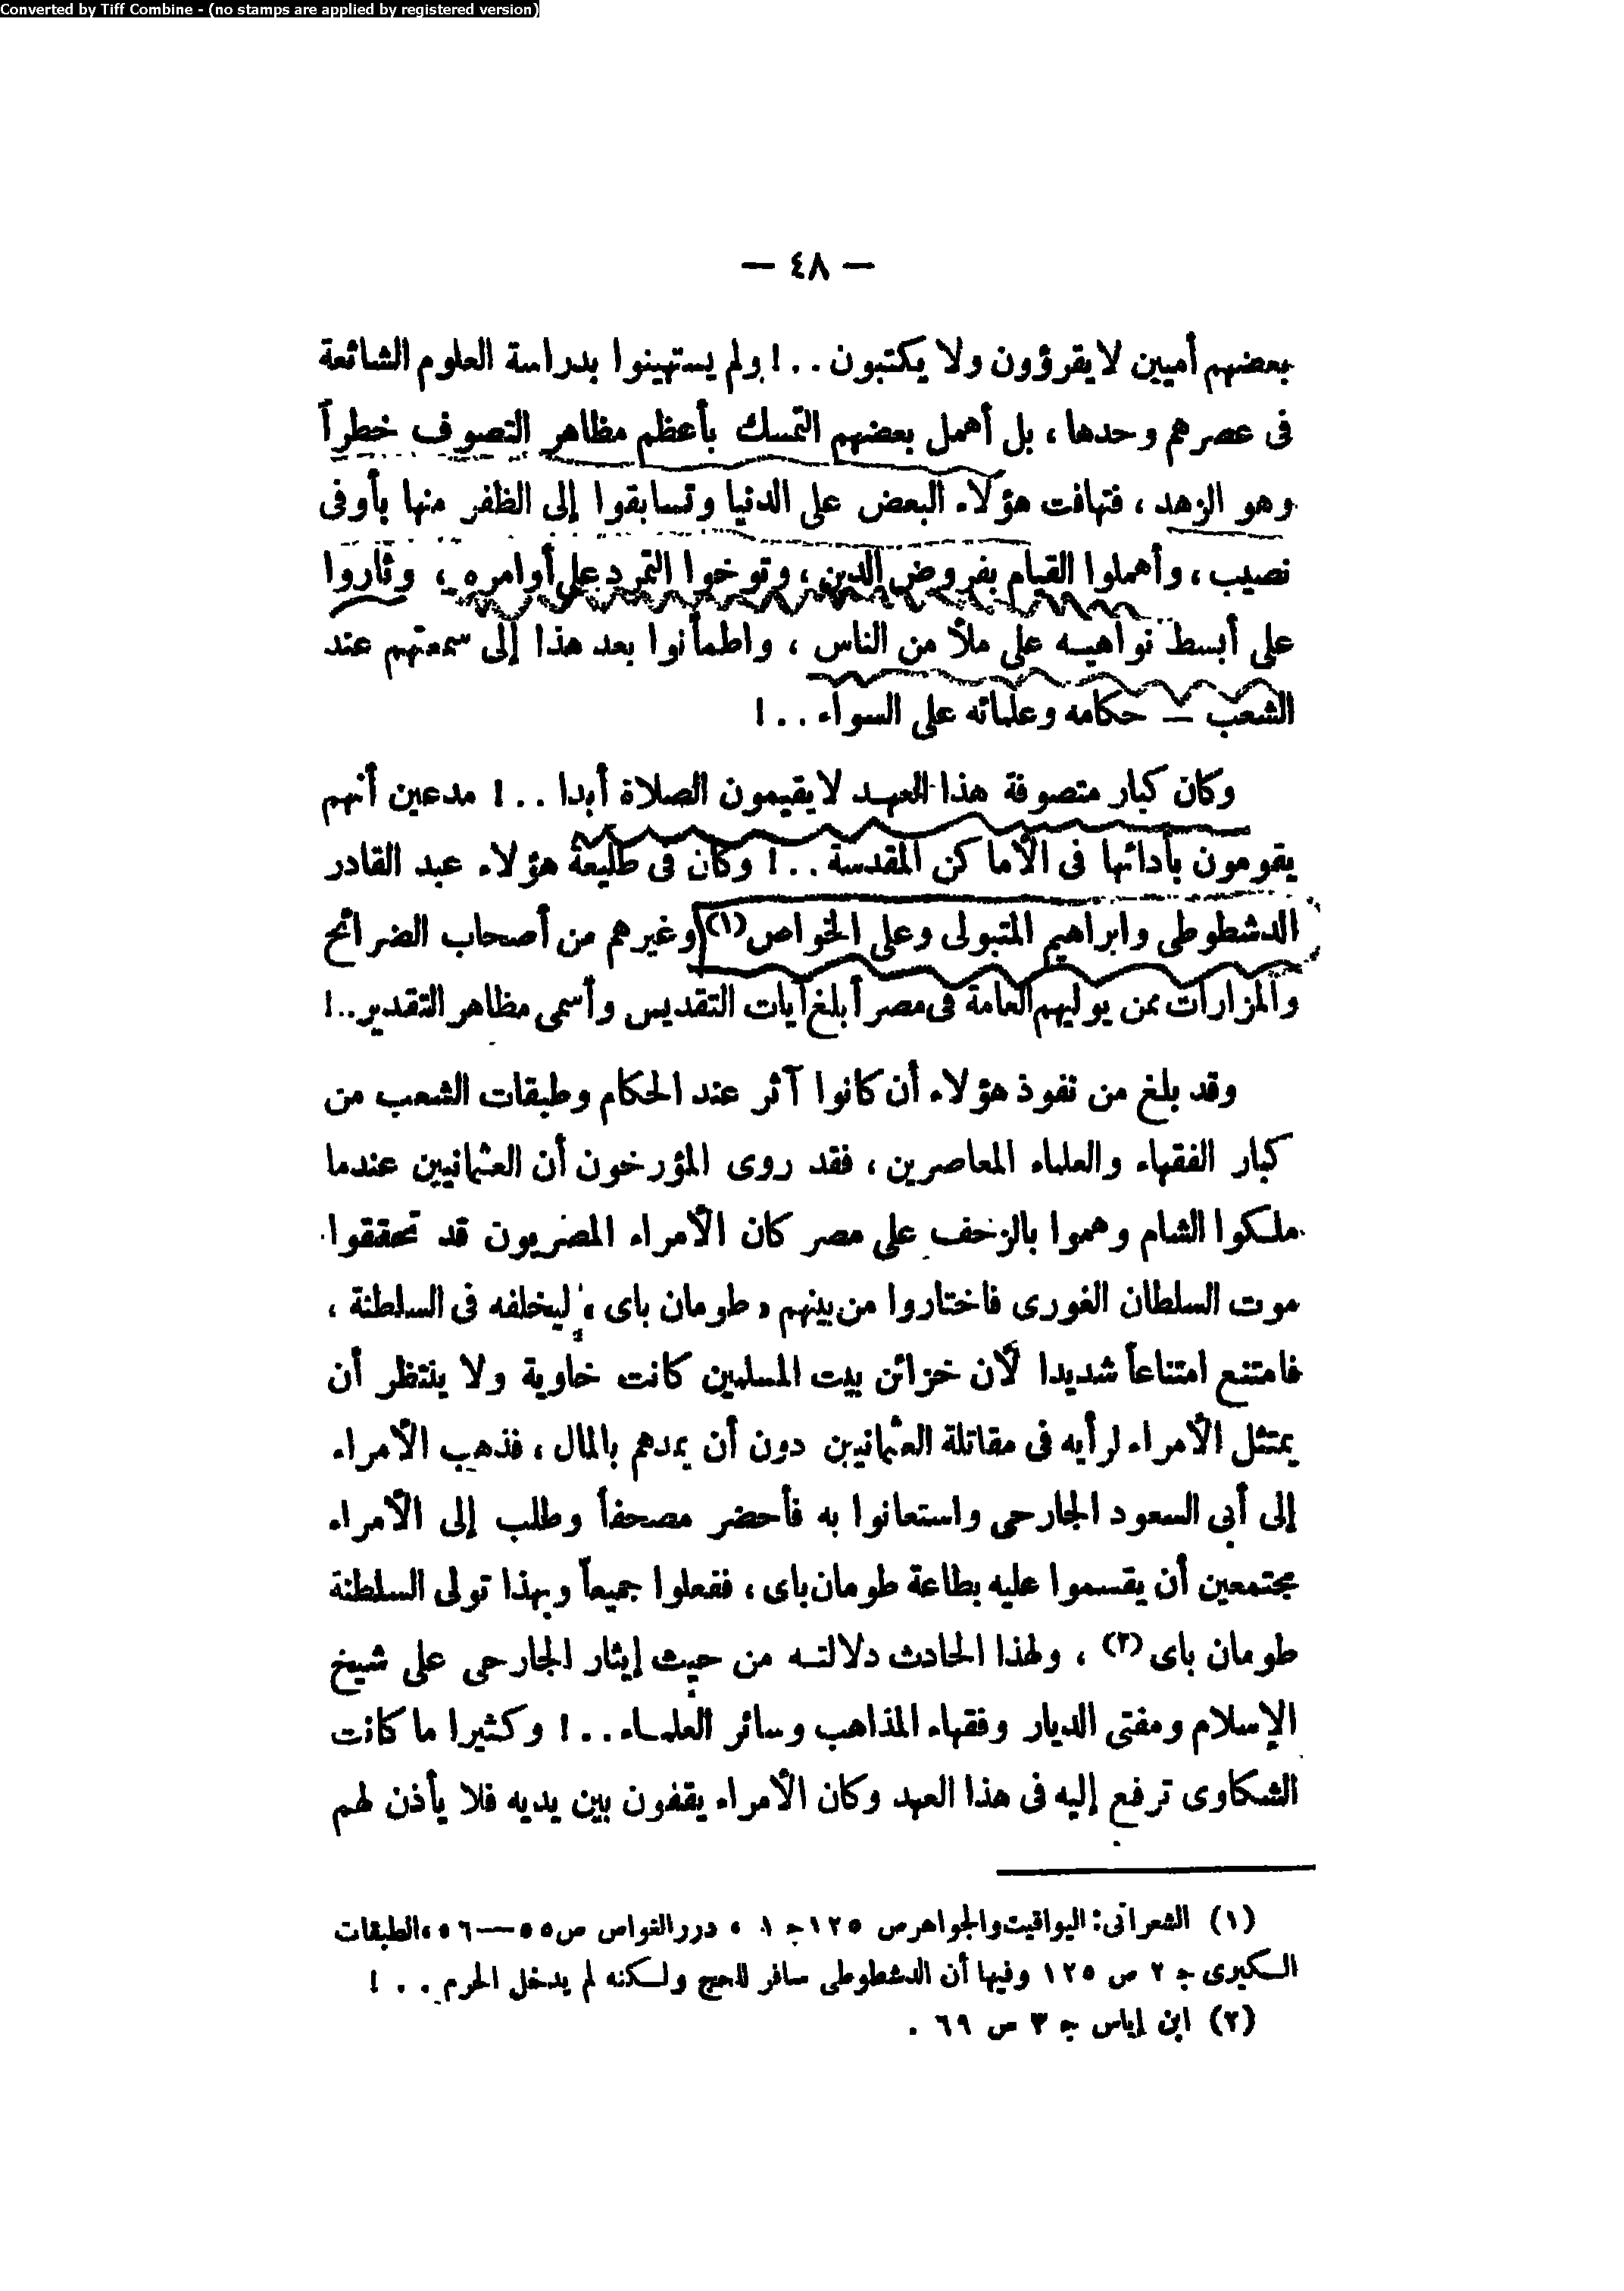 Converted by Tiff Combine - (no stamps are applied by registered version)
— ٤٨ —
بعضهم أميين لا يقرؤون ولا يكتبون . . ! ولم يستهينوا بدراسة العلوم الشائعة
فى عصرهم وحدها ، بل أهمل بعضهم التمسك بأعظم مظاهر التصوف خطراً
وهو الزهد ، فتهافت هؤلاء البعض على الدنيا وتسابقوا إلى الظفر منها بأوفى
نصيب ، وأهملوا القيام بفروض الدين ، وتوخوا التمرد على أوامره ، وثاروا
على أبسط نواهيه على ملأ من الناس ، واطمأنوا بعد هذا إلى سمعتهم عند
الشعب — حكامه وعلمائه على السواء . . !
وكان كبار متصوفة هذا العهد لا يقيمون الصلاة أبدا . . ! مدعين أنهم
يقومون بأدائها فى الأماكن المقدسة . . ! وكان فى طليعة هؤلاء عبد القادر
الدشطوطى وابراهيم المتبولى وعلى الخواص (١) وغيرهم من أصحاب الضرائح
والمزارات ممن يوليهم العامة فى مصر أبلغ آيات التقديس وأسمى مظاهر التقدير . . !
وقد بلغ من نفوذ هؤلاء أن كانوا آثر عند الحكام وطبقات الشعب من
كبار الفقهاء والعلماء المعاصرين ، فقد روى المؤرخون أن العثمانيين عندما
ملكوا الشام وهموا بالزحف على مصر كان الأمراء المصريون قد تحققوا
موت السلطان الغورى فاختاروا من بينهم « طومان باى » ليخلفه فى السلطنة ،
فامتنع امتناعاً شديدا لأن خزائن بيت المسلمين كانت خاوية ولا ينتظر أن
يمتثل الأمراء لرأيه فى مقاتلة العثمانيين دون أن يمدهم بالمال ، فذهب الأمراء
إلى أبى السعود الجارحى واستعانوا به فأحضر مصحفاً وطلب إلى الأمراء
مجتمعين أن يقسموا عليه بطاعة طومان باى ، ففعلوا جميعاً وبهذا تولى السلطنة
طومان باى (٢) ، ولهذا الحادث دلالته من حيث إيثار الجارحى على شيخ
الإسلام ومفتى الديار وفقهاء المذاهب وسائر العلماء . . ! وكثيرا ما كانت
الشكاوى ترفع إليه فى هذا العهد وكان الأمراء يقفون بين يديه فلا يأذن لهم
(١) الشعرانى : اليواقيت والجواهر ص ١٢٥ ج ١ ، درر الغواص ص ٥٥ — ٥٦ ، الطبقات
الكبرى ج ٢ ص ١٢٥ وفيها أن الدشطوطى سافر للحج ولكنه لم يدخل الحرم . . !
(٢) ابن إياس ج ٣ ص ٦٩ .